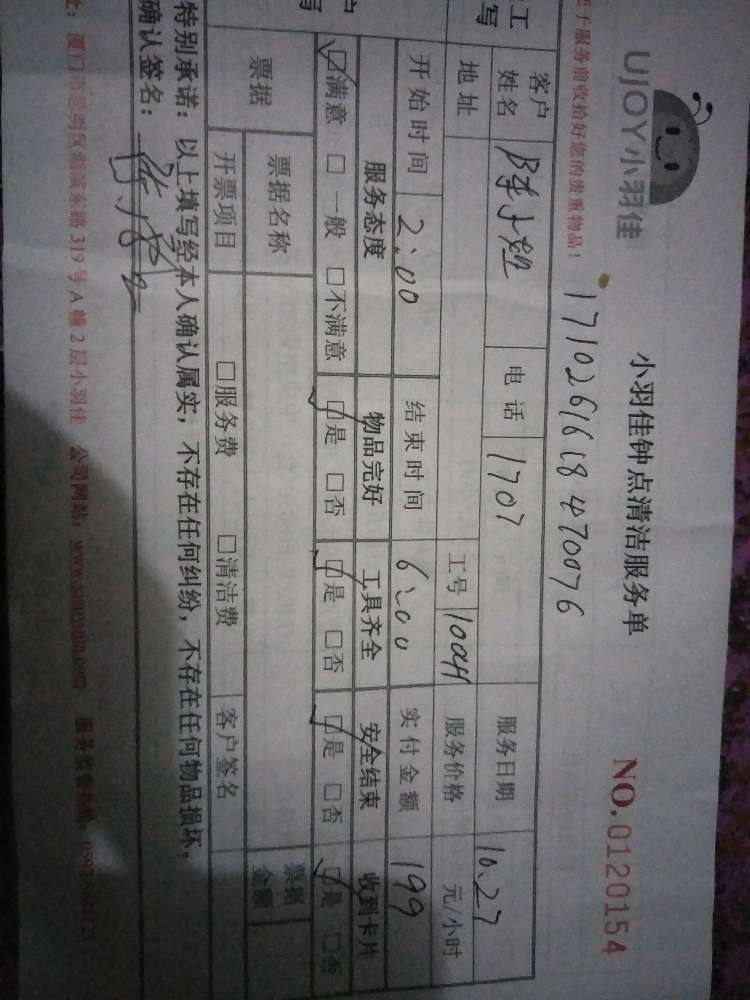 UJOY小羽佳
小羽佳钟点清洁服务单
NO.0120154
于服务前收拾好您的贵重物品!
1710261618470076
客户姓名 电话 1707 服务日期 10.27
地址 工号 100H 服务价格 元/小时
开始时间 2:00 结束时间 6:00 实付金额 199
服务态度 物品完好 工具齐全 安全结束 收到卡片
☑满意 □一般 □不满意 ☑是 □否 ☑是 □否 ☑是 □否 ☑是 □否
票据 票据名称 票据金额
开票项目 □服务费 □清洁费 客户签名
特别承诺:以上填写经本人确认属实,不存在任何纠纷,不存在任何物品损坏。
确认签名:
址:厦门市思明区湖滨东路319号A幢2层小羽佳 公司网站:www.xiaoyujia.com 服务监督热线: